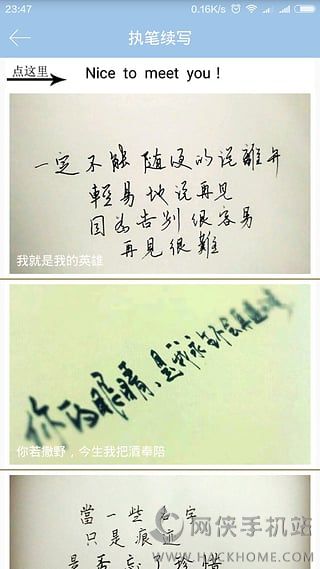 23:47 0.16K/s
执笔续写
点这里 Nice to meet you !
一定不能 随便的说離开
輕易地说再見
因为告别很容易
再見很難
我就是我的英雄
你的眼睛,是我永生不会再遇的海
你若撒野，今生我把酒奉陪
當一些名字
只是痕迹
是否忘了珍惜
网侠手机站
WWW.HACKHOME.COM